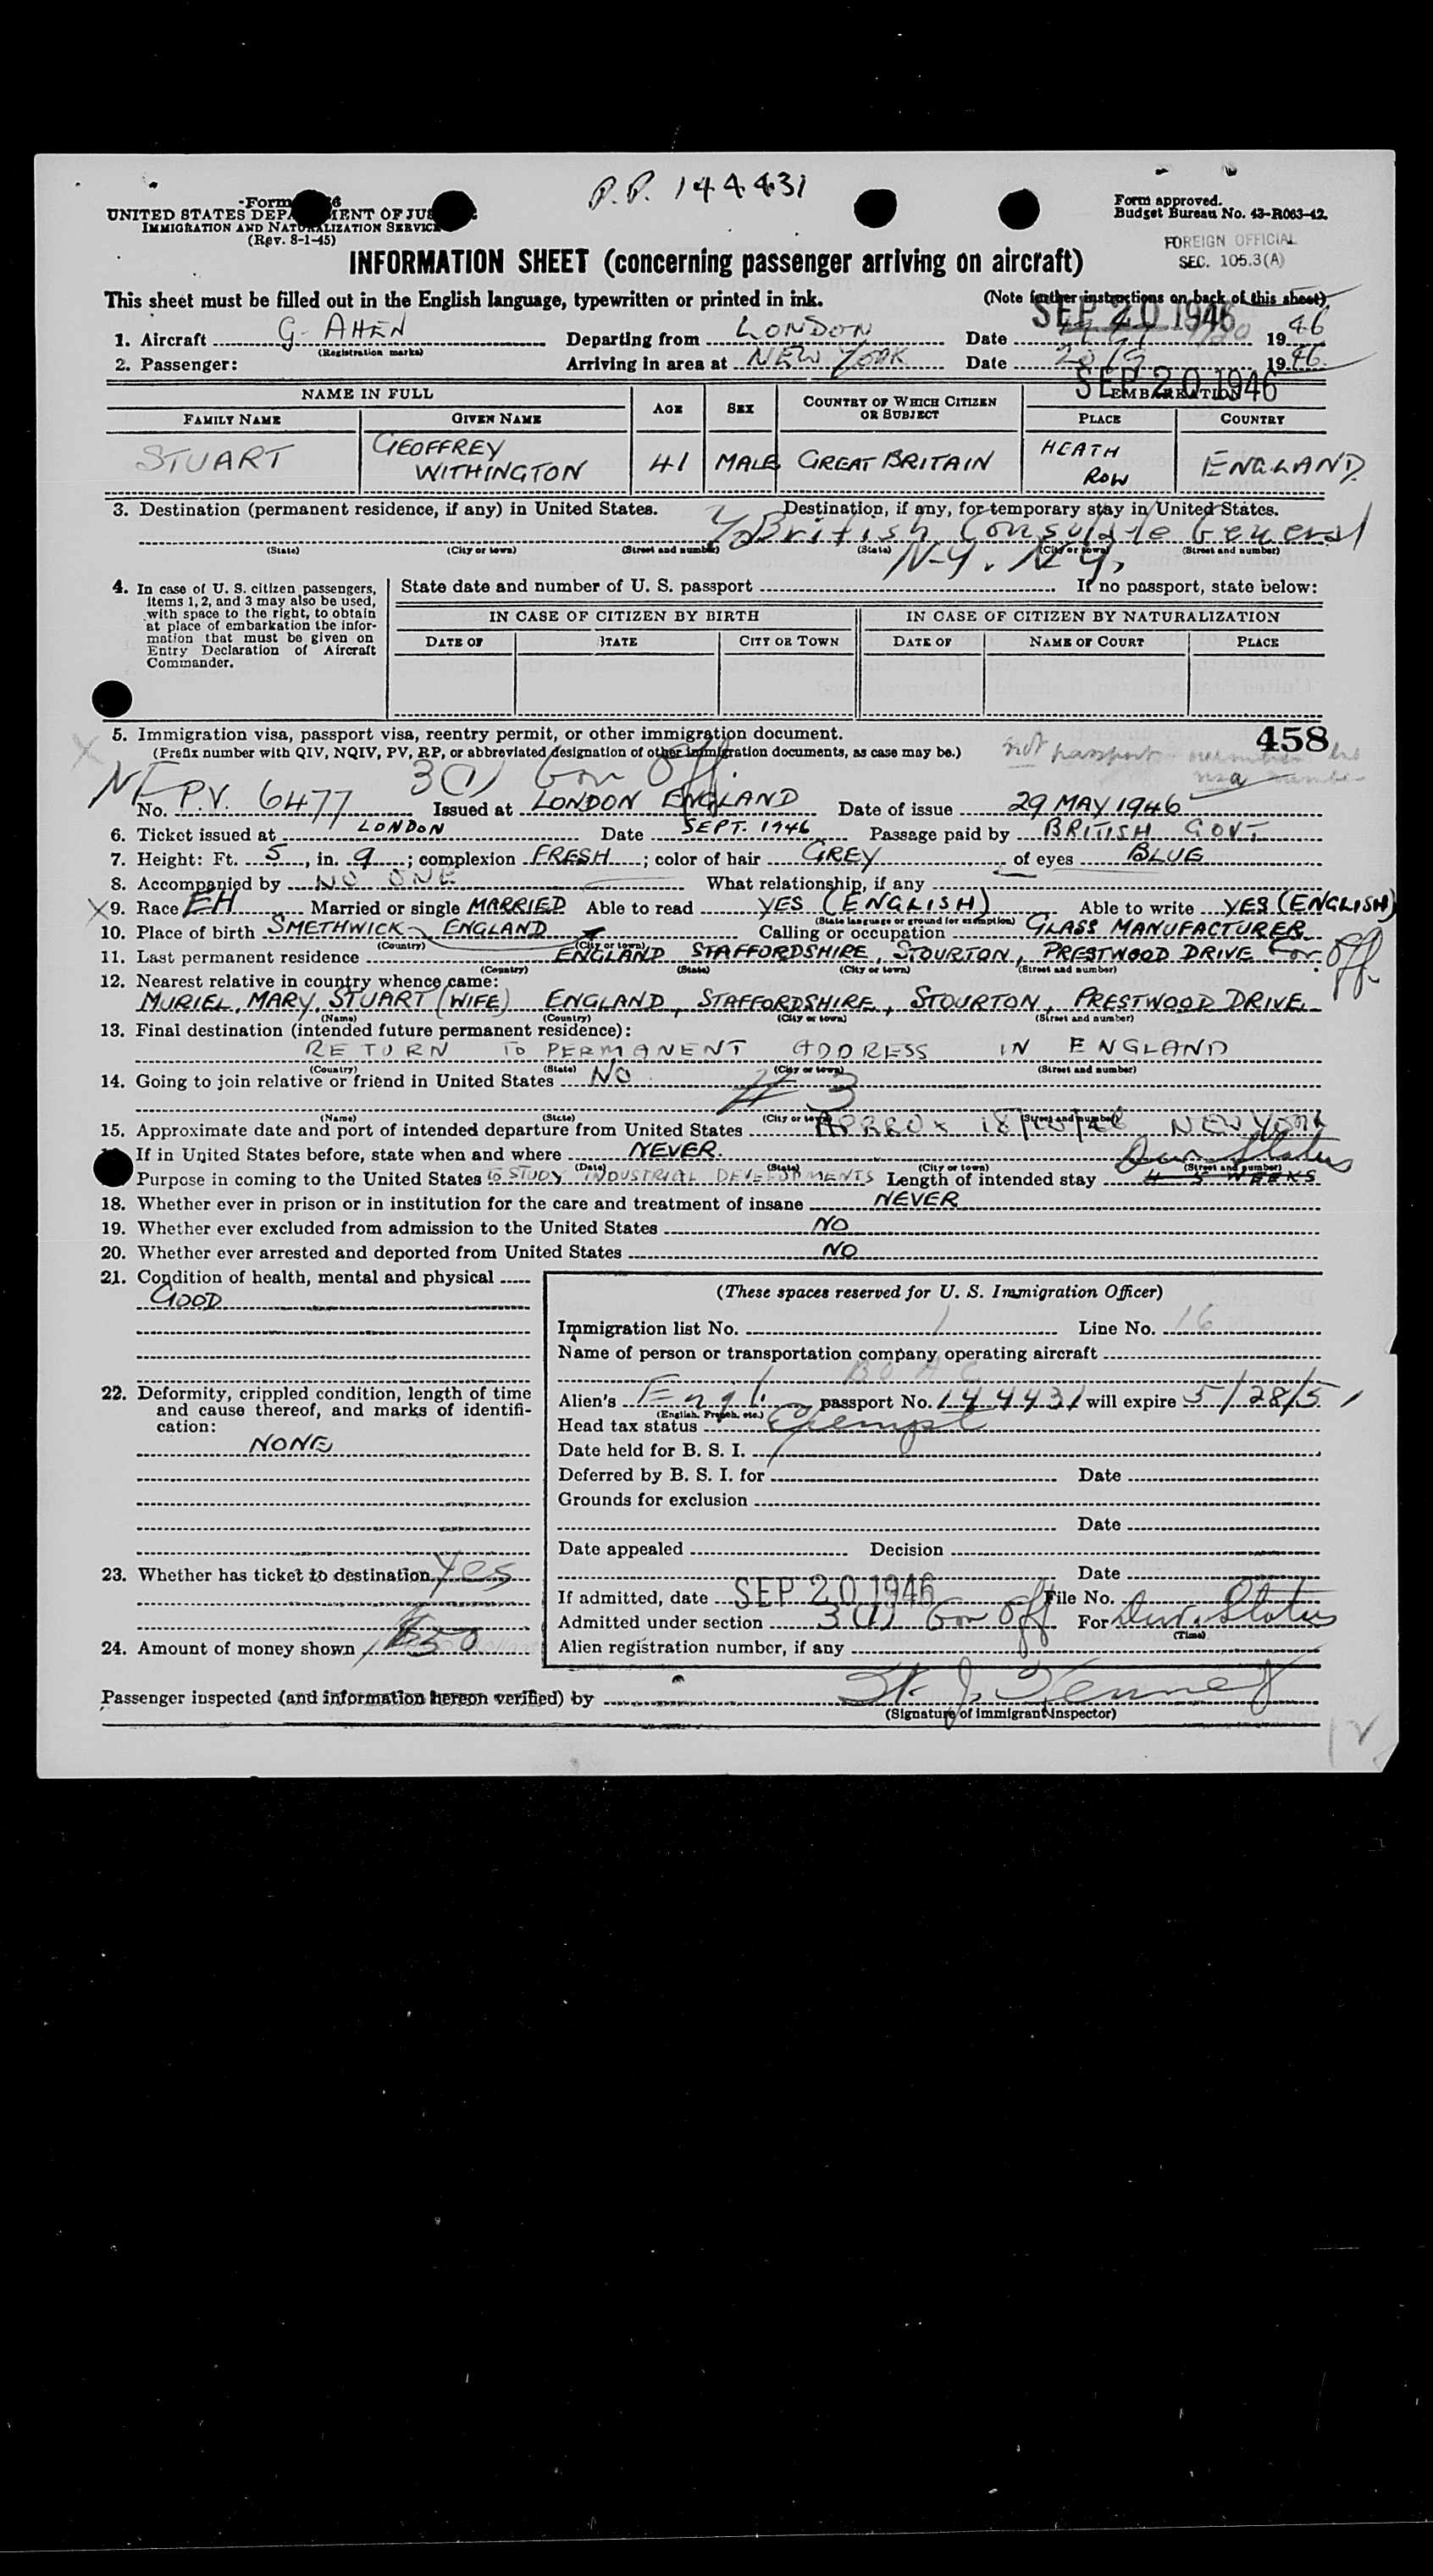 P.P. 144431
Form
UNITED STATES DEPARTMENT OF JUSTICE
IMMIGRATION AND NATURALIZATION SERVICE
(Rev. 8-1-45)
Form approved.
Budget Bureau No. 43-R063-42.
FOREIGN OFFICIAL
SEC. 105.3(A)
INFORMATION SHEET (concerning passenger arriving on aircraft)
This sheet must be filled out in the English language, typewritten or printed in ink. (Note further instructions on back of this sheet)
SEP 20 1946
1. Aircraft G-AHEN Departing from LONDON Date 1946
(Registration marks)
2. Passenger: Arriving in area at NEW YORK Date 20/9 1946
SEP 20 1946
NAME IN FULL AGE SEX COUNTRY OF WHICH CITIZEN OR SUBJECT EMBARKATION
FAMILY NAME GIVEN NAME PLACE COUNTRY
STUART GEOFFREY WITHINGTON 41 MALE GREAT BRITAIN HEATH ROW ENGLAND
3. Destination (permanent residence, if any) in United States. Destination, if any, for temporary stay in United States.
c/o British Consulate General
(State) (City or town) (Street and number) (State) (City or town) (Street and number)
N.Y. N.Y.
4. In case of U. S. citizen passengers, items 1, 2, and 3 may also be used, with space to the right, to obtain at place of embarkation the information that must be given on Entry Declaration of Aircraft Commander.
State date and number of U. S. passport If no passport, state below:
IN CASE OF CITIZEN BY BIRTH IN CASE OF CITIZEN BY NATURALIZATION
DATE OF STATE CITY OR TOWN DATE OF NAME OF COURT PLACE
5. Immigration visa, passport visa, reentry permit, or other immigration document. 458
(Prefix number with QIV, NQIV, PV, RP, or abbreviated designation of other immigration documents, as case may be.) not passport
3(1) Gov Off.
No. P.V. 6477 Issued at LONDON ENGLAND Date of issue 29 MAY 1946
6. Ticket issued at LONDON Date SEPT. 1946 Passage paid by BRITISH GOVT
7. Height: Ft. 5, in. 9; complexion FRESH; color of hair GREY of eyes BLUE
8. Accompanied by NO ONE What relationship, if any
X 9. Race EH Married or single MARRIED Able to read YES (ENGLISH) Able to write YES (ENGLISH)
(State language or ground for exemption)
10. Place of birth SMETHWICK ENGLAND Calling or occupation GLASS MANUFACTURER
(Country) (City or town)
Gov Off.
11. Last permanent residence ENGLAND STAFFORDSHIRE, STOURTON, PRESTWOOD DRIVE
(Country) (State) (City or town) (Street and number)
12. Nearest relative in country whence came:
MURIEL MARY STUART (WIFE) ENGLAND, STAFFORDSHIRE, STOURTON, PRESTWOOD DRIVE
(Name) (Country) (City or town) (Street and number)
13. Final destination (intended future permanent residence):
RETURN TO PERMANENT ADDRESS IN ENGLAND
(Country) (State) (City or town) (Street and number)
14. Going to join relative or friend in United States NO
# 3
(Name) (State) (City or town) (Street and number)
15. Approximate date and port of intended departure from United States APPROX 18/10/46 NEW YORK
If in United States before, state when and where NEVER.
(Date) (State) (City or town) (Street and number)
Dur. Status
Purpose in coming to the United States TO STUDY INDUSTRIAL DEVELOPMENTS Length of intended stay 4 5 WEEKS
18. Whether ever in prison or in institution for the care and treatment of insane NEVER
19. Whether ever excluded from admission to the United States NO
20. Whether ever arrested and deported from United States NO
21. Condition of health, mental and physical
GOOD
(These spaces reserved for U. S. Immigration Officer)
Immigration list No. 1 Line No. 16
Name of person or transportation company operating aircraft
BOAC
22. Deformity, crippled condition, length of time and cause thereof, and marks of identification:
NONE
Alien's Engl. passport No. 144431 will expire 5/28/51
(English, French, etc.)
Head tax status Exempt
Date held for B. S. I.
Deferred by B. S. I. for Date
Grounds for exclusion
Date
Date appealed Decision
23. Whether has ticket to destination Yes
Date
If admitted, date SEP 20 1946 File No.
Admitted under section 3(1) Gov Off For Dur. Status
(Time)
24. Amount of money shown $50
Alien registration number, if any
Passenger inspected (and information hereon verified) by
(Signature of immigrant inspector)